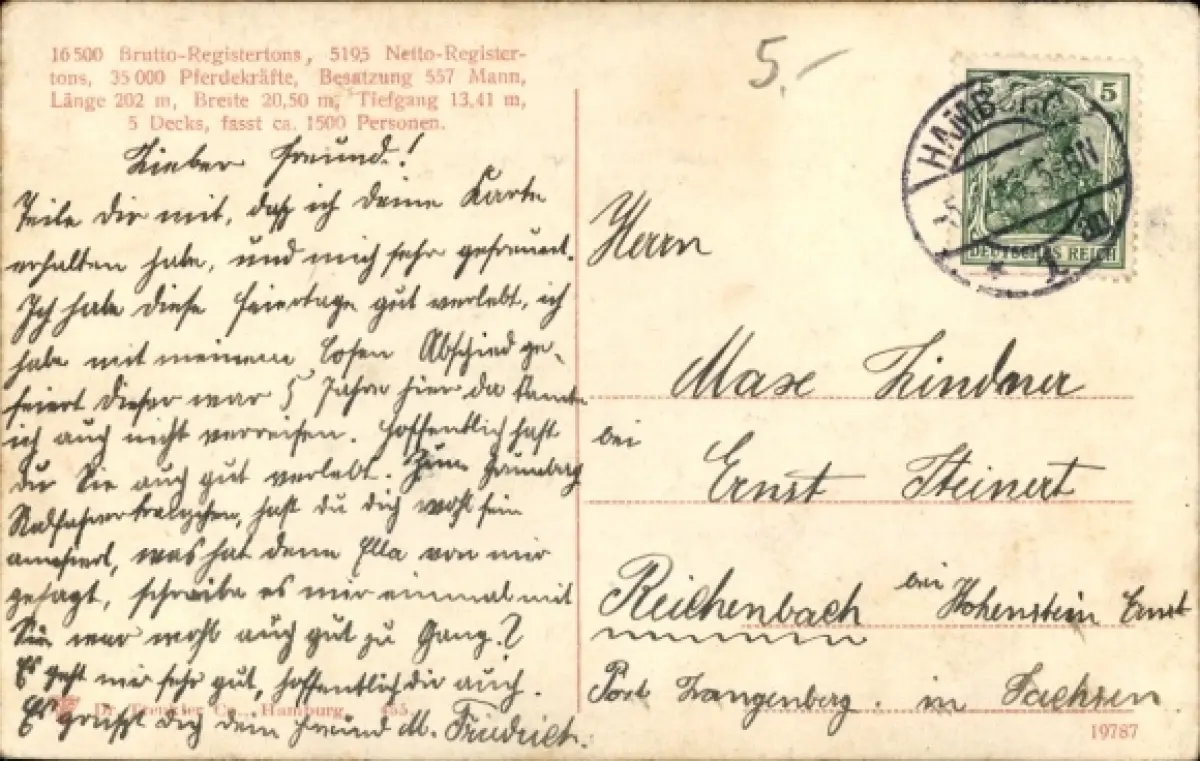 16500 Brutto-Registertons, 5195 Netto-Register-
tons, 35000 Pferdekräfte, Besatzung 557 Mann,
Länge 202 m, Breite 20,50 m, Tiefgang 13,41 m,
5 Decks, fasst ca. 1500 Personen.
5.-
Lieber Freund!
Teile dir mit, daß ich deine Karte
erhalten habe, und mich sehr gefreut.
Ich habe diese Feiertage gut verlebt, ich
habe mit meinem Abschied ge-
feiert dieser war 5 Jahre hier da konnte
ich auch nicht verreisen. Hoffentlich hast
Du Sie auch gut verlebt. Zum
hast du dich wohl fein
amüsiert, was hat denn Ella von mir
gesagt, schreibe es mir einmal mit
Sie war wohl auch gut zu Gang?
Es geht mir sehr gut, hoffentlich dir auch.
Es grüßt dich dein Freund M. Friedrich.
Dr. Trenkler Co., Hamburg.
HAMBURG
5-6N
* 1
5
DEUTSCHES REICH
Herrn
Max Lindner
bei
Ernst Steinert
Reichenbach bei Hohenstein Ernst
Post Langenberg. in Sachsen
19787